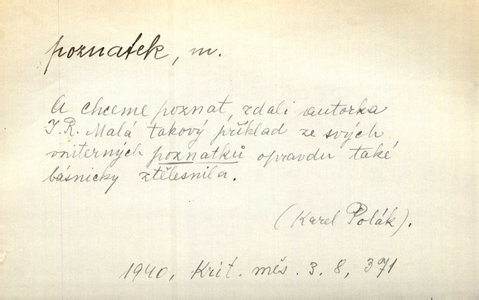 poznatek, m.
A chceme poznat, zdali autorka
J. R. Malá takový příklad ze svých
vniterných poznatků opravdu také
básnicky ztělesnila.
(Karel Polák).
1940, Krit. měs. 3. 8, 371